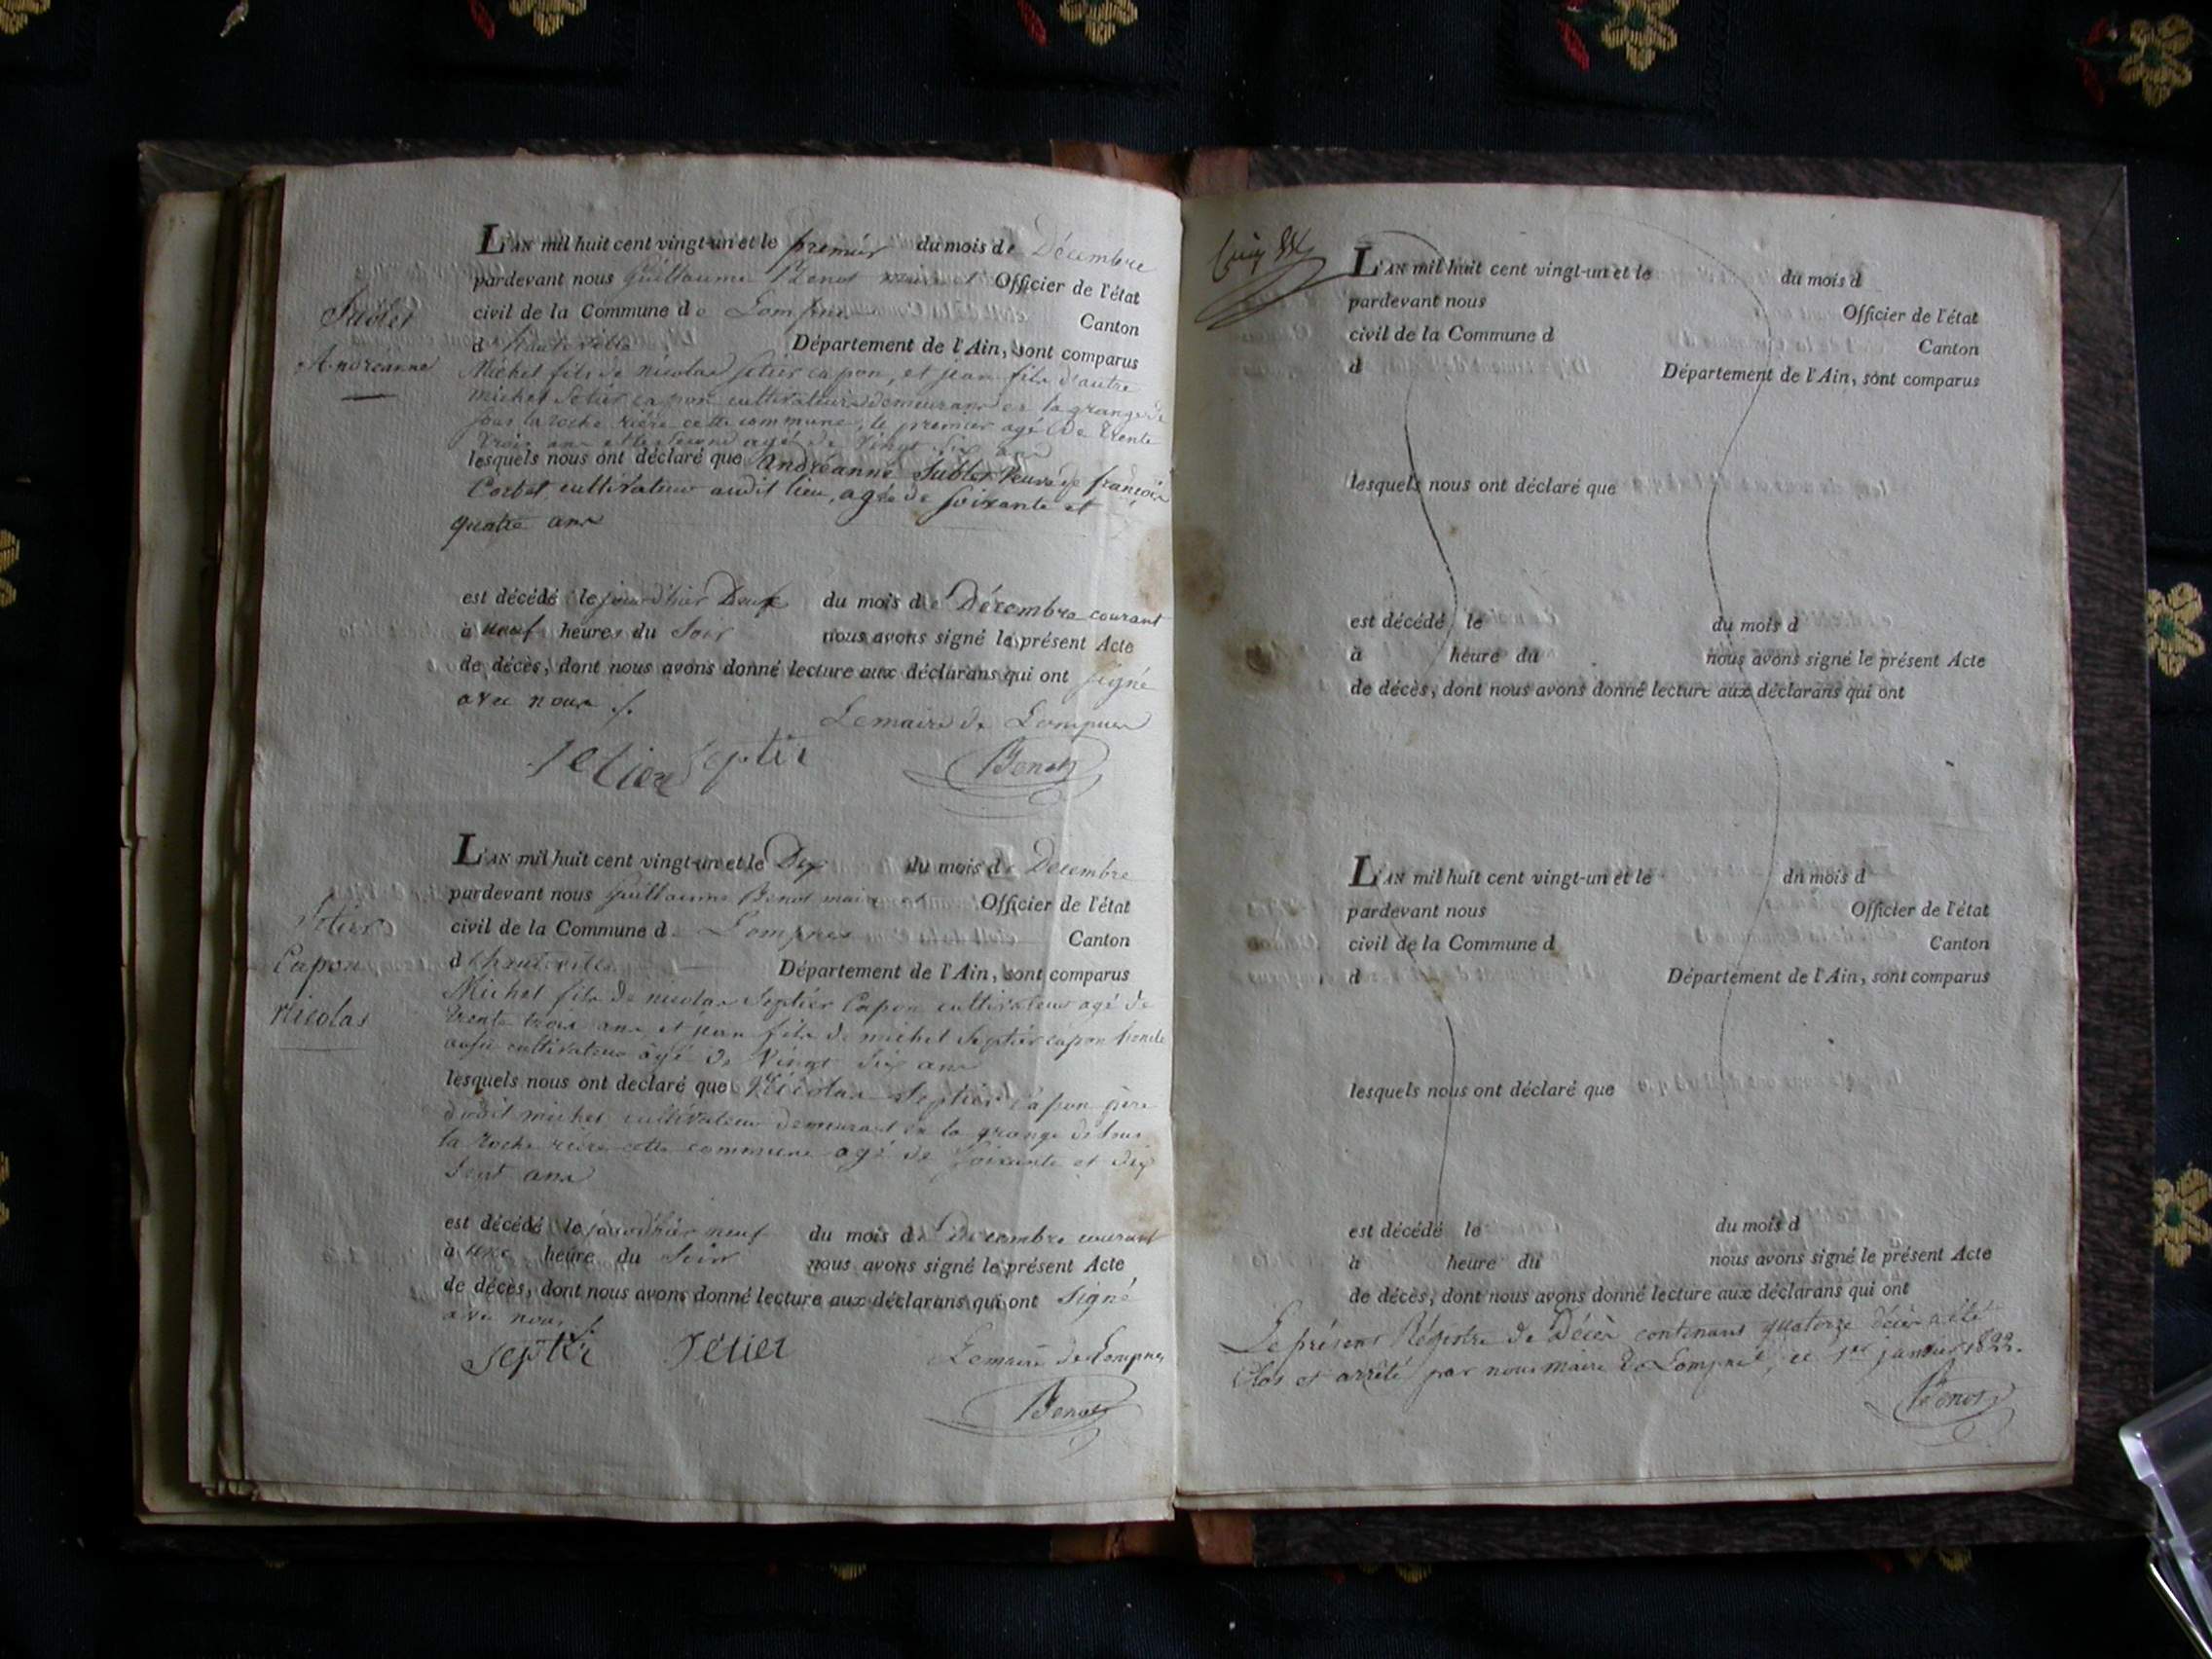 L'AN mil huit cent vingt-un et le premier du mois de Décembre
pardevant nous Guillaume Benot maire et Officier de l'état
civil de la Commune de Lompnes Canton
d'hauteville Département de l'Ain, sont comparus
Sublet
Andréanne
Michel fils de nicolas Sétier capon, et jean fils d'autre
michel Sétier capon cultivateurs demeurans en la grange de
sous la roche rière cette commune, le premier agé de trente
trois ans et le second agé de Vingt six ans
lesquels nous ont déclaré que Andréanne Sublet Veuve de françois
Corbet cultivateur audit lieu, agée de soixante et
quatre ans
est décédé le jourd'hier Deux du mois de Décembre courant
à neuf heures du Soir nous avons signé le présent Acte
de décès, dont nous avons donné lecture aux déclarans qui ont signé
avec nous ./.
Lemaire de Lompnes
Setier Septier Benot
L'AN mil huit cent vingt-un et le Dix du mois de Decembre
pardevant nous Guillaume Benot maire et Officier de l'état
civil de la Commune de Lompnes Canton
d'hauteville Département de l'Ain, sont comparus
Sétier
Capon
Nicolas
Michel fils de nicolas Septier Capon cultivateur agé de
trente trois ans, et jean fils de michel Septier capon
aussi cultivateur âgé de Vingt six ans
lesquels nous ont declaré que Nicolas Septier capon père
dudit michel, cultivateur demeurant en la grange de sous
la roche rière cette commune agé de soixante et dix
sept ans
est décédé le jourd'hier neuf du mois de Décembre courant
à une heure du Soir nous avons signé le présent Acte
de décès, dont nous avons donné lecture aux déclarans qui ont signé
avec nous ./.
Septier Setier Lemaire de Lompnes
Benot
L'AN mil huit cent vingt-un et le du mois d
pardevant nous Officier de l'état
civil de la Commune d Canton
d Département de l'Ain, sont comparus
lesquels nous ont déclaré que
est décédé le du mois d
à heure du nous avons signé le présent Acte
de décès, dont nous avons donné lecture aux déclarans qui ont
L'AN mil huit cent vingt-un et le du mois d
pardevant nous Officier de l'état
civil de la Commune d Canton
d Département de l'Ain, sont comparus
lesquels nous ont déclaré que
est décédé le du mois d
à heure du nous avons signé le présent Acte
de décès, dont nous avons donné lecture aux déclarans qui ont
Le présent Régistre de Décès contenant quatorze décès a été
Clos et arrêté par nous maire de Lompnes, ce 1er janvier 1822.
Benot